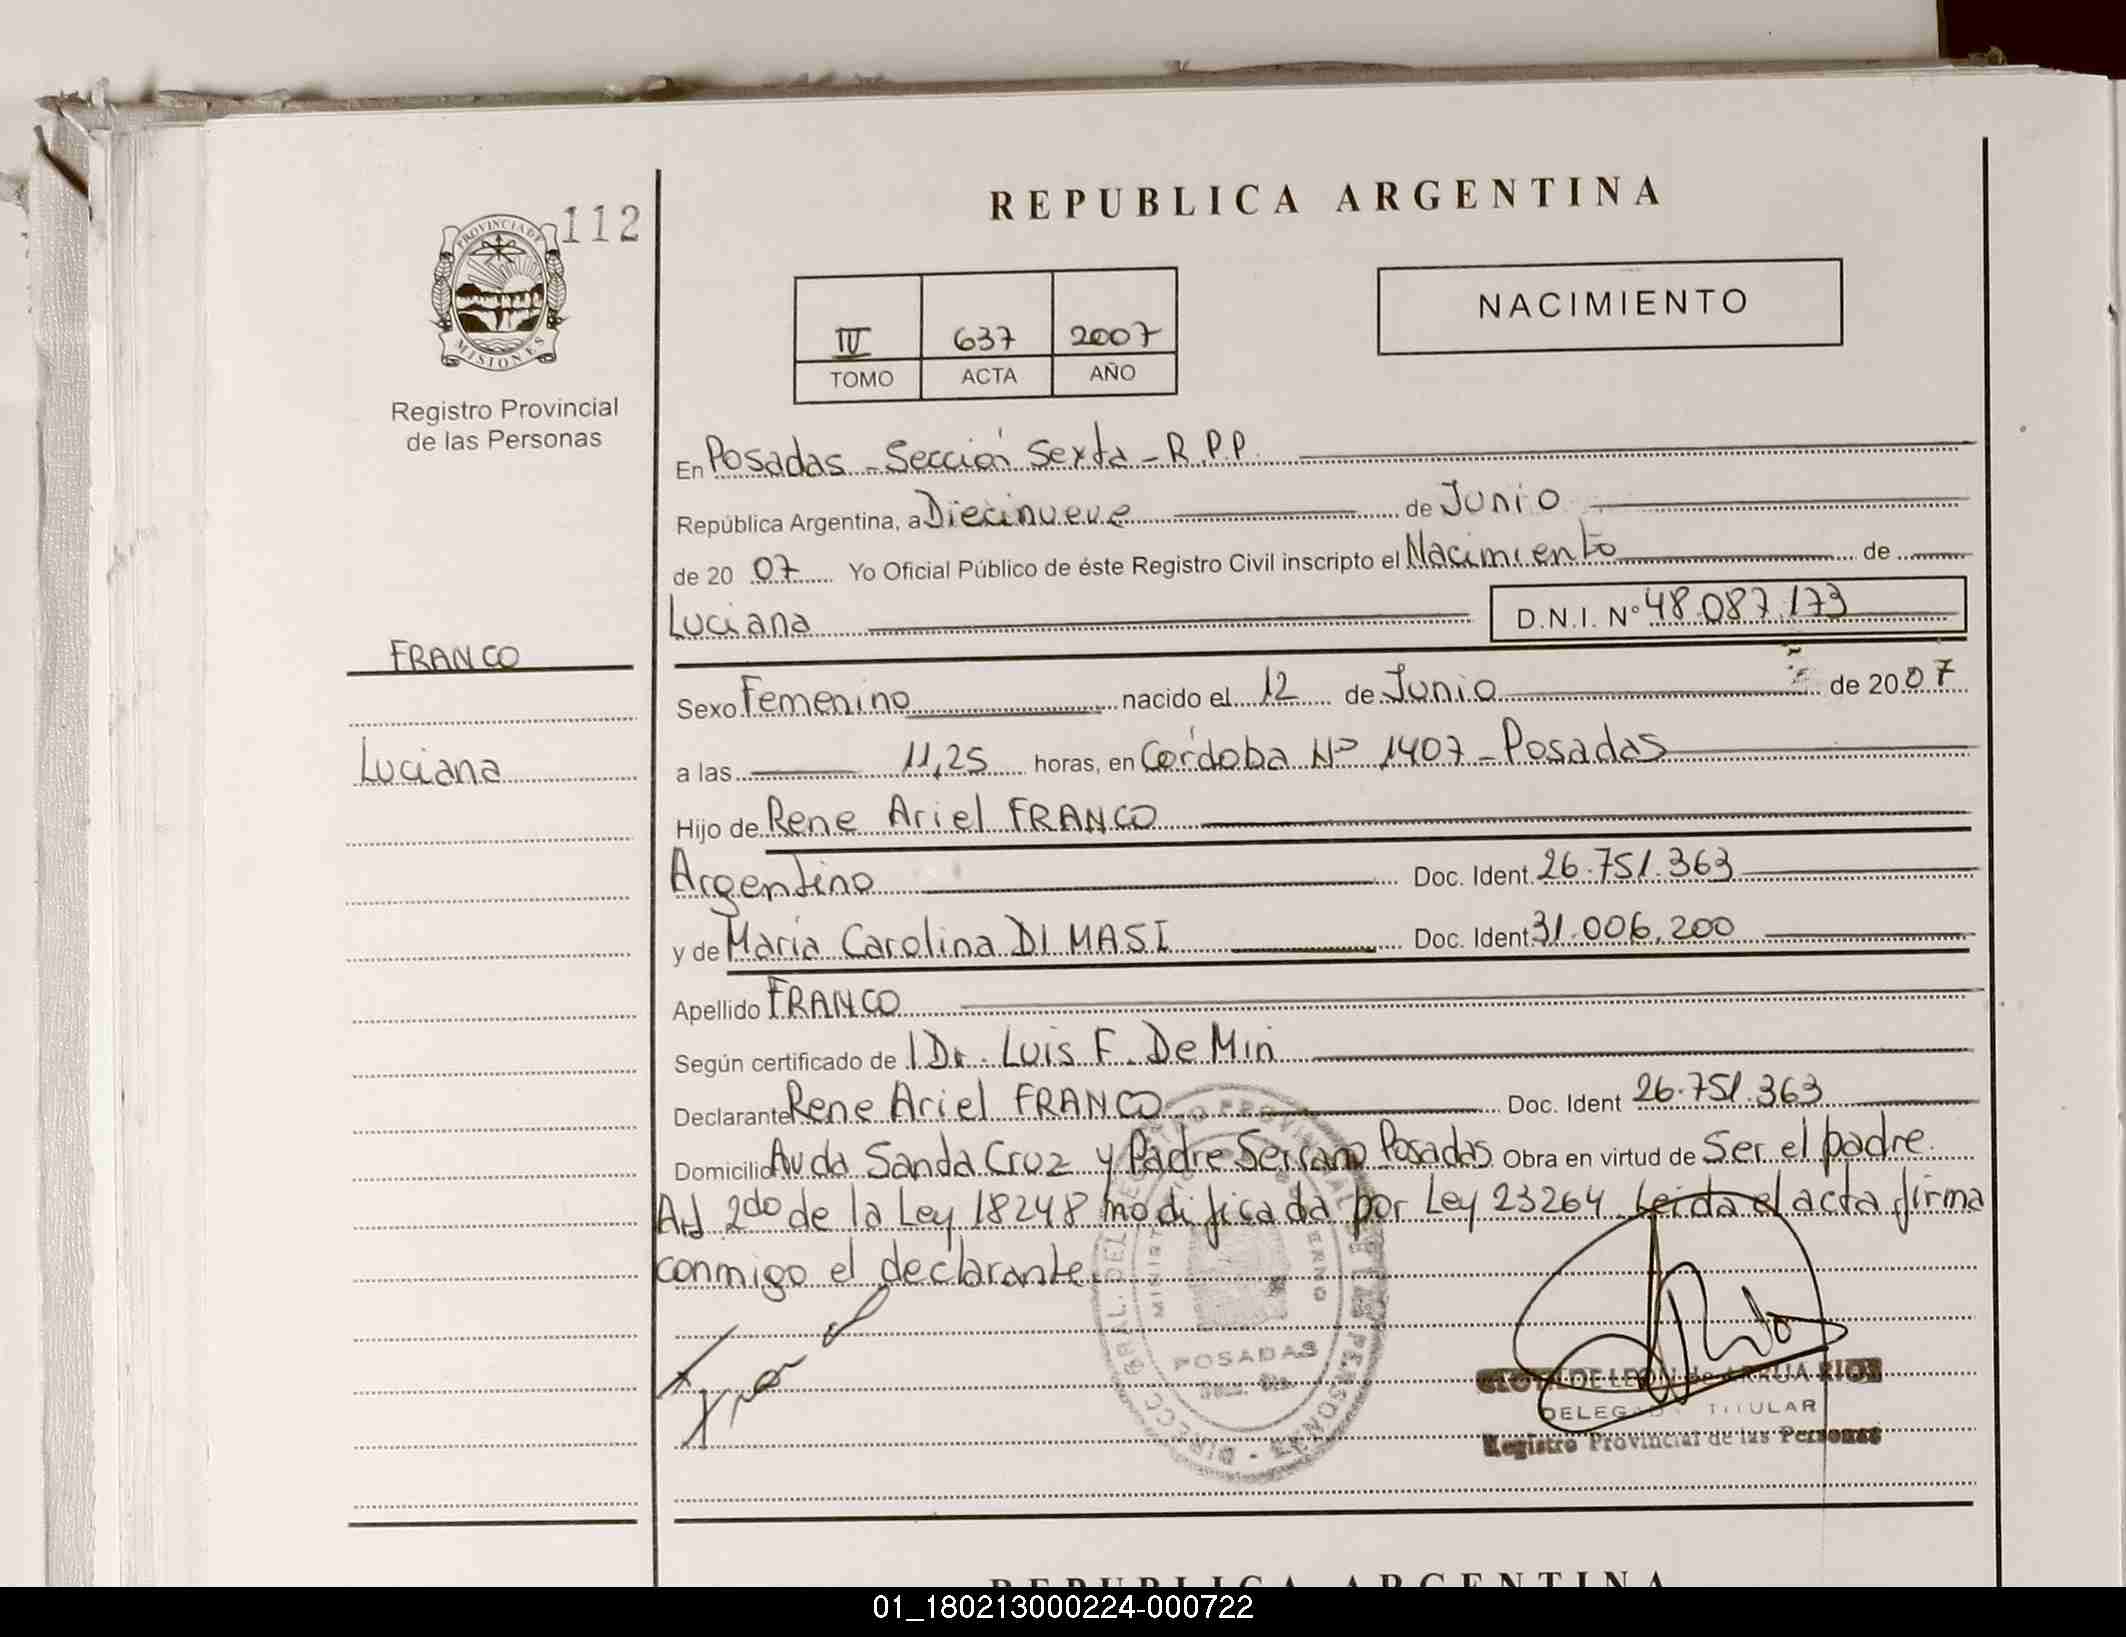 REPUBLICA ARGENTINA
112
PROVINCIA DE
MISIONES
Registro Provincial
de las Personas
IV 637 2007
TOMO ACTA AÑO
NACIMIENTO
En Posadas - Sección Sexta - R.P.P.
República Argentina, a Diecinueve de Junio
de 20 07 Yo Oficial Público de éste Registro Civil inscripto el Nacimiento de
Luciana D.N.I. Nº 48.087.173
FRANCO
Sexo Femenino nacido el 12 de Junio de 20 07
Luciana
a las 11,25 horas, en Córdoba Nº 1407 - Posadas
Hijo de Rene Ariel FRANCO
Argentino Doc. Ident. 26.751.363
y de Maria Carolina DI MASI Doc. Ident 31.006.200
Apellido FRANCO
Según certificado de Dr. Luis F. De Min
Declarante Rene Ariel FRANCO Doc. Ident 26.751.363
Domicilio Avda Santa Cruz y Padre Serrano Posadas Obra en virtud de Ser el padre.
Art 2do de la Ley 18248 modificada por Ley 23264 Leida el acta firma
conmigo el declarante.
DIRECC. GRAL. DEL REGISTRO PROVINCIAL DE LAS PERSONAS
POSADAS
DE LEON de ARRUA RIOS
DELEGADA TITULAR
Registro Provincial de las Personas
REPUBLICA ARGENTINA
01_180213000224-000722